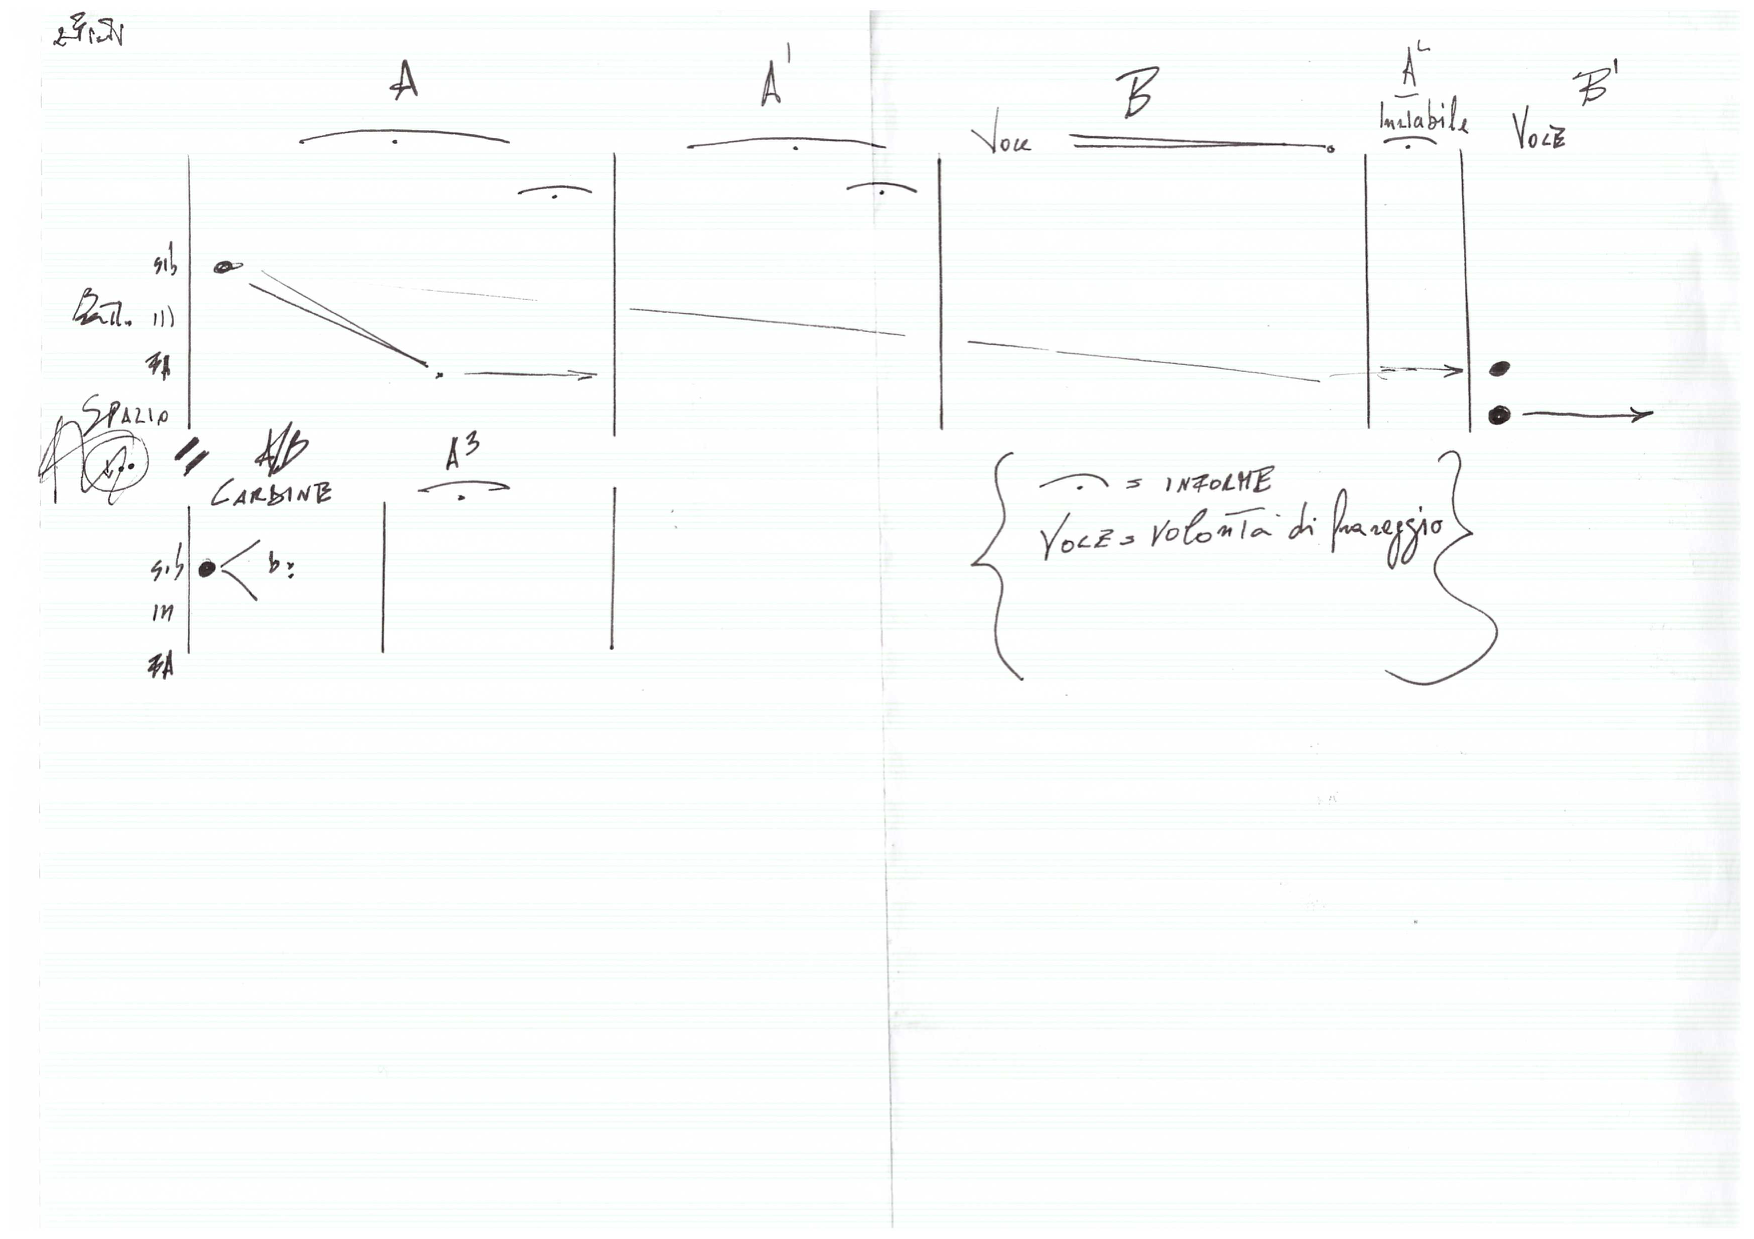 A A' B A² B'
Voce Instabile VOCE
sib
Batt. III
FA
SPAZIO
A/B A³
CARDINE
sib b:
III
FA
= INFORME
VOCE = VOLONTÀ di fraseggio